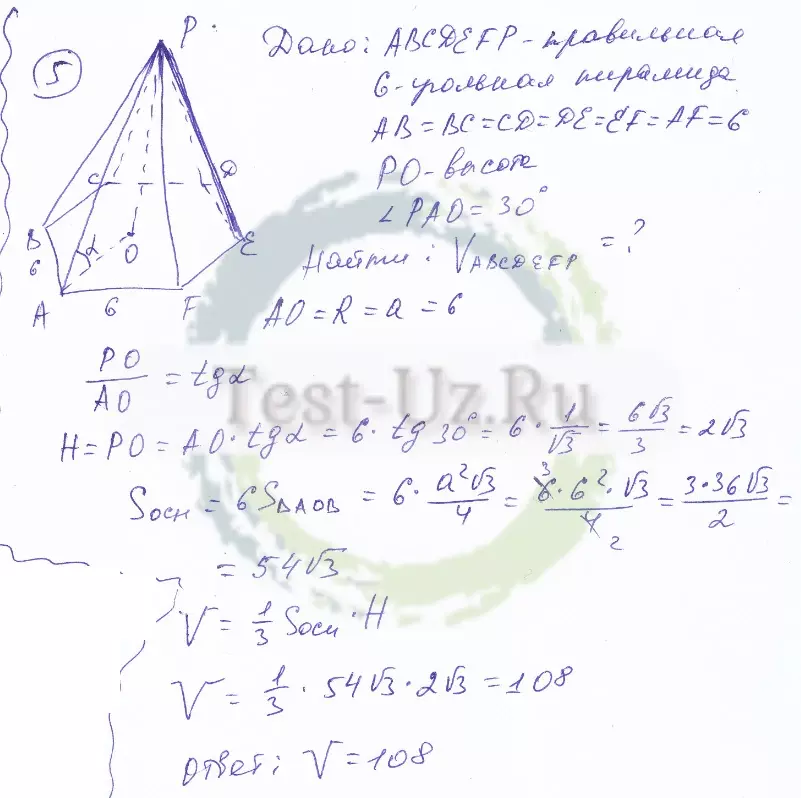 5
P
C
D
B
α
O
E
6
A
6
F
Дано: ABCDEFP - правильная
6-угольная пирамида
AB = BC = CD = DE = EF = AF = 6
PO - высота
∠PAO = 30°
Найти: V_ABCDEFP = ?
AO = R = a = 6
PO/AO = tgα
Test-Uz.Ru
H = PO = AO · tgα = 6 · tg 30° = 6 · 1/√3 = 6√3/3 = 2√3
Sосн = 6S_ΔAOB = 6 · a²√3/4 = 6 · 6² · √3/4 = 3·36√3/2 =
3
2
= 54√3
V = 1/3 Sосн · H
V = 1/3 · 54√3 · 2√3 = 108
Ответ: V = 108